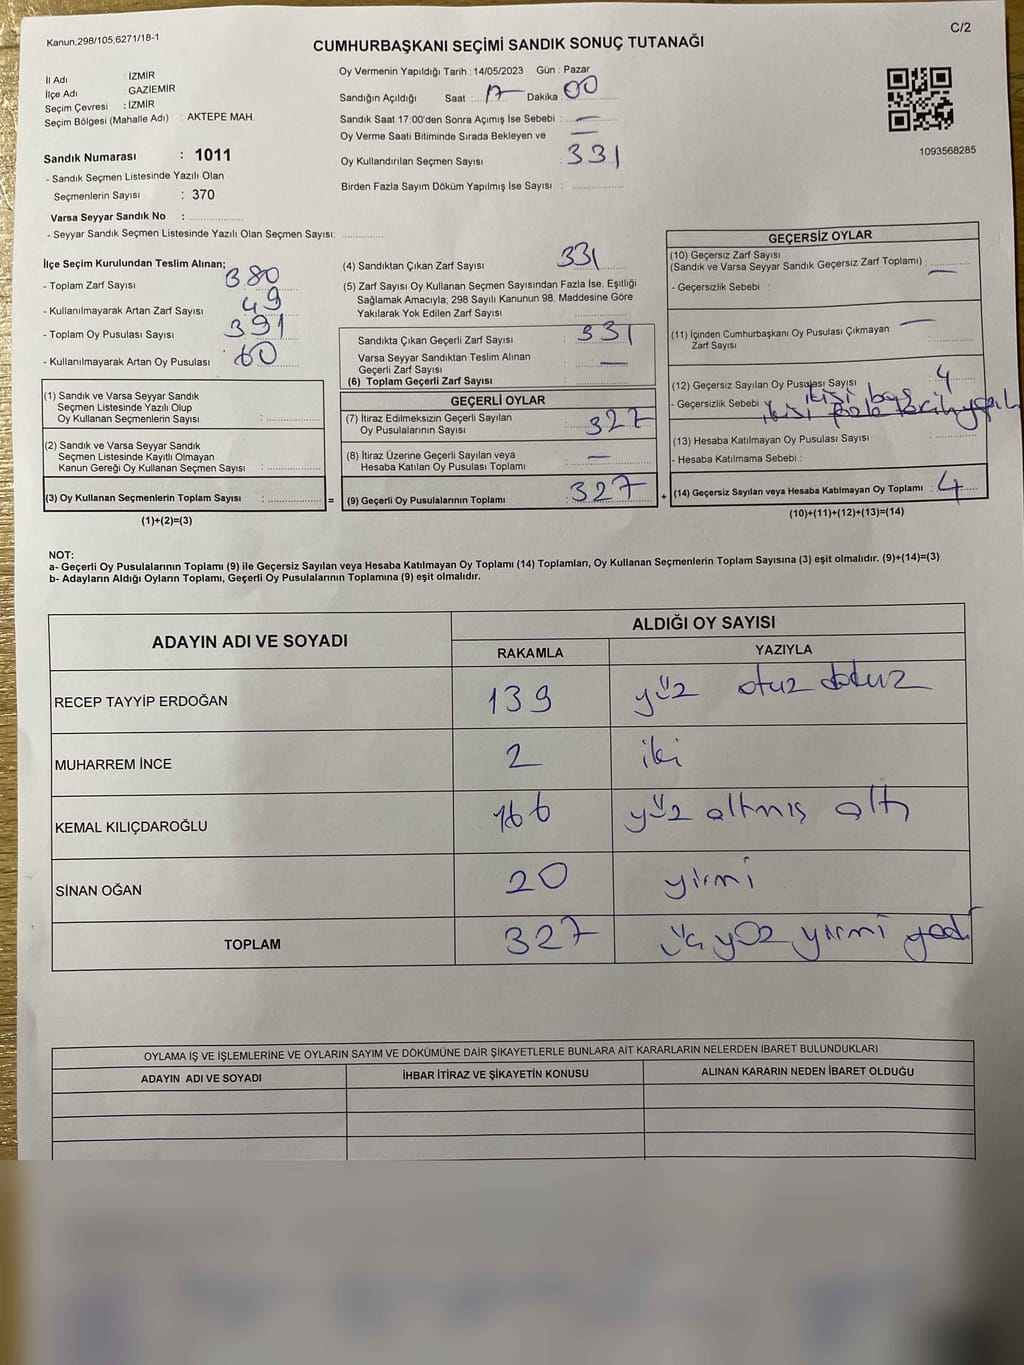 Kanun,298/105,6271/18-1
C/2
CUMHURBAŞKANI SEÇİMİ SANDIK SONUÇ TUTANAĞI
İl Adı : İZMİR
İlçe Adı : GAZİEMİR
Seçim Çevresi : İZMİR
Seçim Bölgesi (Mahalle Adı) : AKTEPE MAH.
Sandık Numarası : 1011
- Sandık Seçmen Listesinde Yazılı Olan
Seçmenlerin Sayısı : 370
Varsa Seyyar Sandık No :
- Seyyar Sandık Seçmen Listesinde Yazılı Olan Seçmen Sayısı:
Oy Vermenin Yapıldığı Tarih : 14/05/2023 Gün : Pazar
Sandığın Açıldığı Saat : 17 Dakika 00
Sandık Saat 17:00'den Sonra Açımış İse Sebebi : —
Oy Verme Saati Bitiminde Sırada Bekleyen ve —
Oy Kullandırılan Seçmen Sayısı : 331
Birden Fazla Sayım Döküm Yapılmış İse Sayısı :
1093568285
İlçe Seçim Kurulundan Teslim Alınan;
- Toplam Zarf Sayısı : 380
- Kullanılmayarak Artan Zarf Sayısı : 49
- Toplam Oy Pusulası Sayısı : 391
- Kullanılmayarak Artan Oy Pusulası : 60
(1) Sandık ve Varsa Seyyar Sandık
Seçmen Listesinde Yazılı Olup
Oy Kullanan Seçmenlerin Sayısı :
(2) Sandık ve Varsa Seyyar Sandık
Seçmen Listesinde Kayıtlı Olmayan
Kanun Gereği Oy Kullanan Seçmen Sayısı :
(3) Oy Kullanan Seçmenlerin Toplam Sayısı : =
(1)+(2)=(3)
(4) Sandıktan Çıkan Zarf Sayısı : 331
(5) Zarf Sayısı Oy Kullanan Seçmen Sayısından Fazla İse, Eşitliği
Sağlamak Amacıyla; 298 Sayılı Kanunun 98. Maddesine Göre
Yakılarak Yok Edilen Zarf Sayısı :
Sandıkta Çıkan Geçerli Zarf Sayısı : 331
Varsa Seyyar Sandıktan Teslim Alınan
Geçerli Zarf Sayısı : —
(6) Toplam Geçerli Zarf Sayısı :
GEÇERLİ OYLAR
(7) İtiraz Edilmeksizin Geçerli Sayılan
Oy Pusulalarının Sayısı : 327
(8) İtiraz Üzerine Geçerli Sayılan veya
Hesaba Katılan Oy Pusulası Toplamı : —
(9) Geçerli Oy Pusulalarının Toplamı : 327 +
GEÇERSİZ OYLAR
(10) Geçersiz Zarf Sayısı
(Sandık ve Varsa Seyyar Sandık Geçersiz Zarf Toplamı) : —
- Geçersizlik Sebebi :
(11) İçinden Cumhurbaşkanı Oy Pusulası Çıkmayan —
Zarf Sayısı :
(12) Geçersiz Sayılan Oy Pusulası Sayısı : 4
- Geçersizlik Sebebi : ikisi boş
ikisi
(13) Hesaba Katılmayan Oy Pusulası Sayısı :
- Hesaba Katılmama Sebebi :
(14) Geçersiz Sayılan veya Hesaba Katılmayan Oy Toplamı : 4
(10)+(11)+(12)+(13)=(14)
NOT:
a- Geçerli Oy Pusulalarının Toplamı (9) ile Geçersiz Sayılan veya Hesaba Katılmayan Oy Toplamı (14) Toplamları, Oy Kullanan Seçmenlerin Toplam Sayısına (3) eşit olmalıdır. (9)+(14)=(3)
b- Adayların Aldığı Oyların Toplamı, Geçerli Oy Pusulalarının Toplamına (9) eşit olmalıdır.
ADAYIN ADI VE SOYADI ALDIĞI OY SAYISI
RAKAMLA YAZIYLA
RECEP TAYYİP ERDOĞAN 139 yüz otuz dokuz
MUHARREM İNCE 2 iki
KEMAL KILIÇDAROĞLU 166 yüz altmış altı
SİNAN OĞAN 20 yirmi
TOPLAM 327 üç yüz yirmi yedi
OYLAMA İŞ VE İŞLEMLERİNE VE OYLARIN SAYIM VE DÖKÜMÜNE DAİR ŞİKAYETLERLE BUNLARA AİT KARARLARIN NELERDEN İBARET BULUNDUKLARI
ADAYIN ADI VE SOYADI İHBAR İTİRAZ VE ŞİKAYETİN KONUSU ALINAN KARARIN NEDEN İBARET OLDUĞU